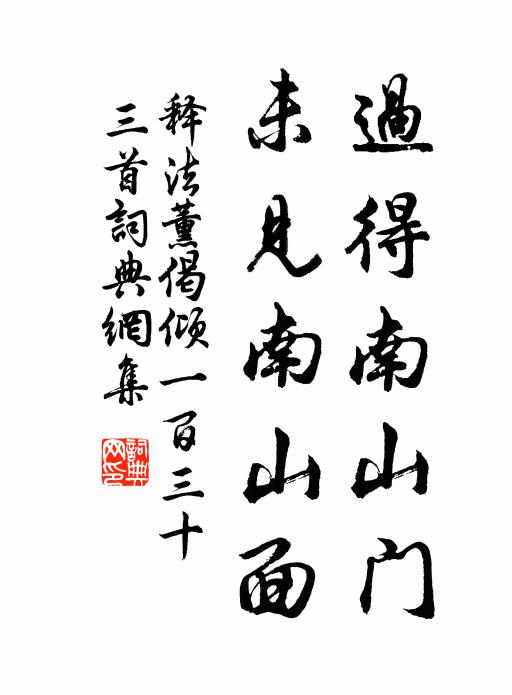 過得南山门
未见南山面
释法薰偈倾一百三十
三首詞典網集
詞典
网印